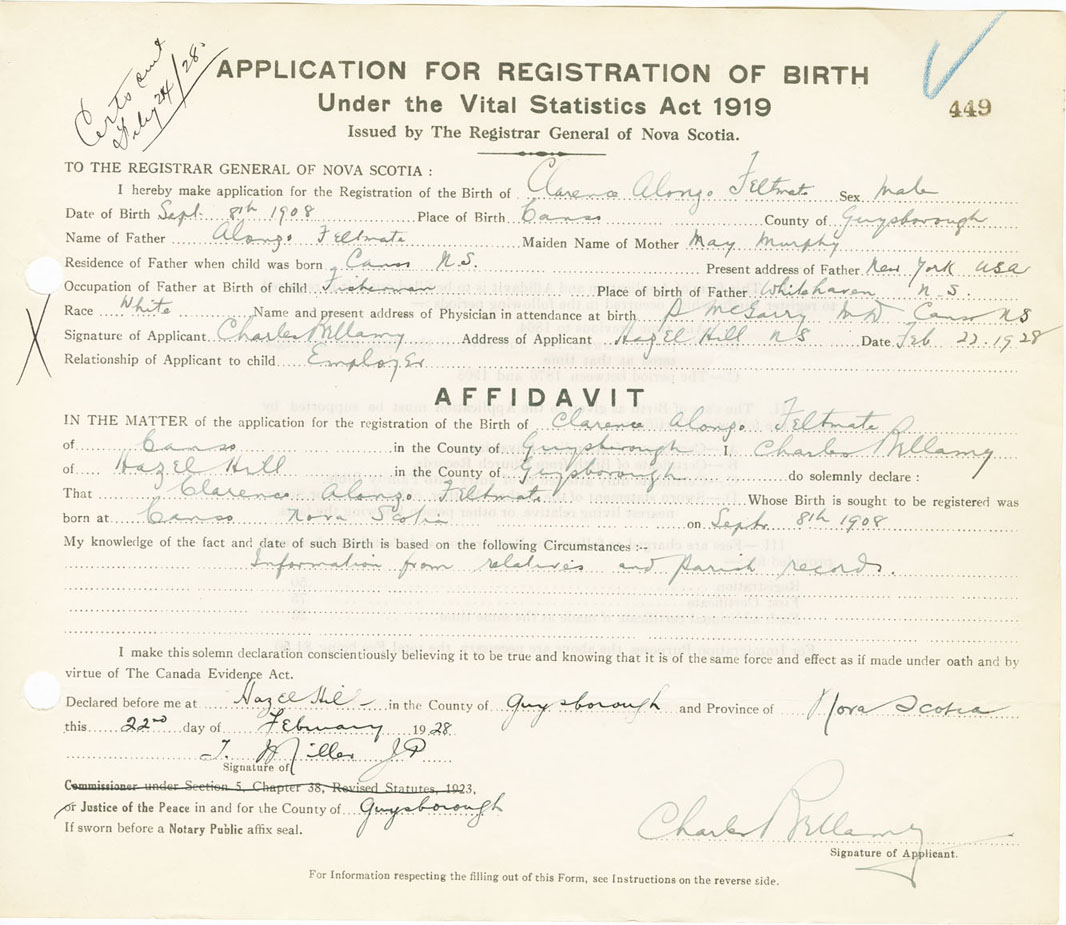 Certs sent
Feby 24/28.
APPLICATION FOR REGISTRATION OF BIRTH
Under the Vital Statistics Act 1919
449
Issued by The Registrar General of Nova Scotia.
TO THE REGISTRAR GENERAL OF NOVA SCOTIA :
I hereby make application for the Registration of the Birth of Clarence Alonzo Feltmate Sex Male
Date of Birth Sept. 8th 1908 Place of Birth Canso County of Guysborough
Name of Father Alonzo Feltmate Maiden Name of Mother May Murphy
Residence of Father when child was born Canso N.S. Present address of Father New York USA
Occupation of Father at Birth of child Fisherman Place of birth of Father Whitehaven N.S.
Race White Name and present address of Physician in attendance at birth P McGarry MD Canso NS
Signature of Applicant Charles Bellamy Address of Applicant Hazel Hill NS Date Feb 22. 1928
Relationship of Applicant to child Employer
AFFIDAVIT
IN THE MATTER of the application for the registration of the Birth of Clarence Alonzo Feltmate
of Canso in the County of Guysborough I, Charles Bellamy
of Hazel Hill in the County of Guysborough do solemnly declare :
That Clarence Alonzo Feltmate Whose Birth is sought to be registered was
born at Canso Nova Scotia on Septr 8th 1908
My knowledge of the fact and date of such Birth is based on the following Circumstances :--
Information from relatives and parish records.
I make this solemn declaration conscientiously believing it to be true and knowing that it is of the same force and effect as if made under oath and by
virtue of The Canada Evidence Act.
Declared before me at Hazel Hill in the County of Guysborough and Province of Nova Scotia
this 22nd day of February 1928
T. Miller JP
Signature of
Commissioner under Section 5, Chapter 38, Revised Statutes, 1923,
or Justice of the Peace in and for the County of Guysborough
If sworn before a Notary Public affix seal.
Charles Bellamy
Signature of Applicant.
For Information respecting the filling out of this Form, see Instructions on the reverse side.